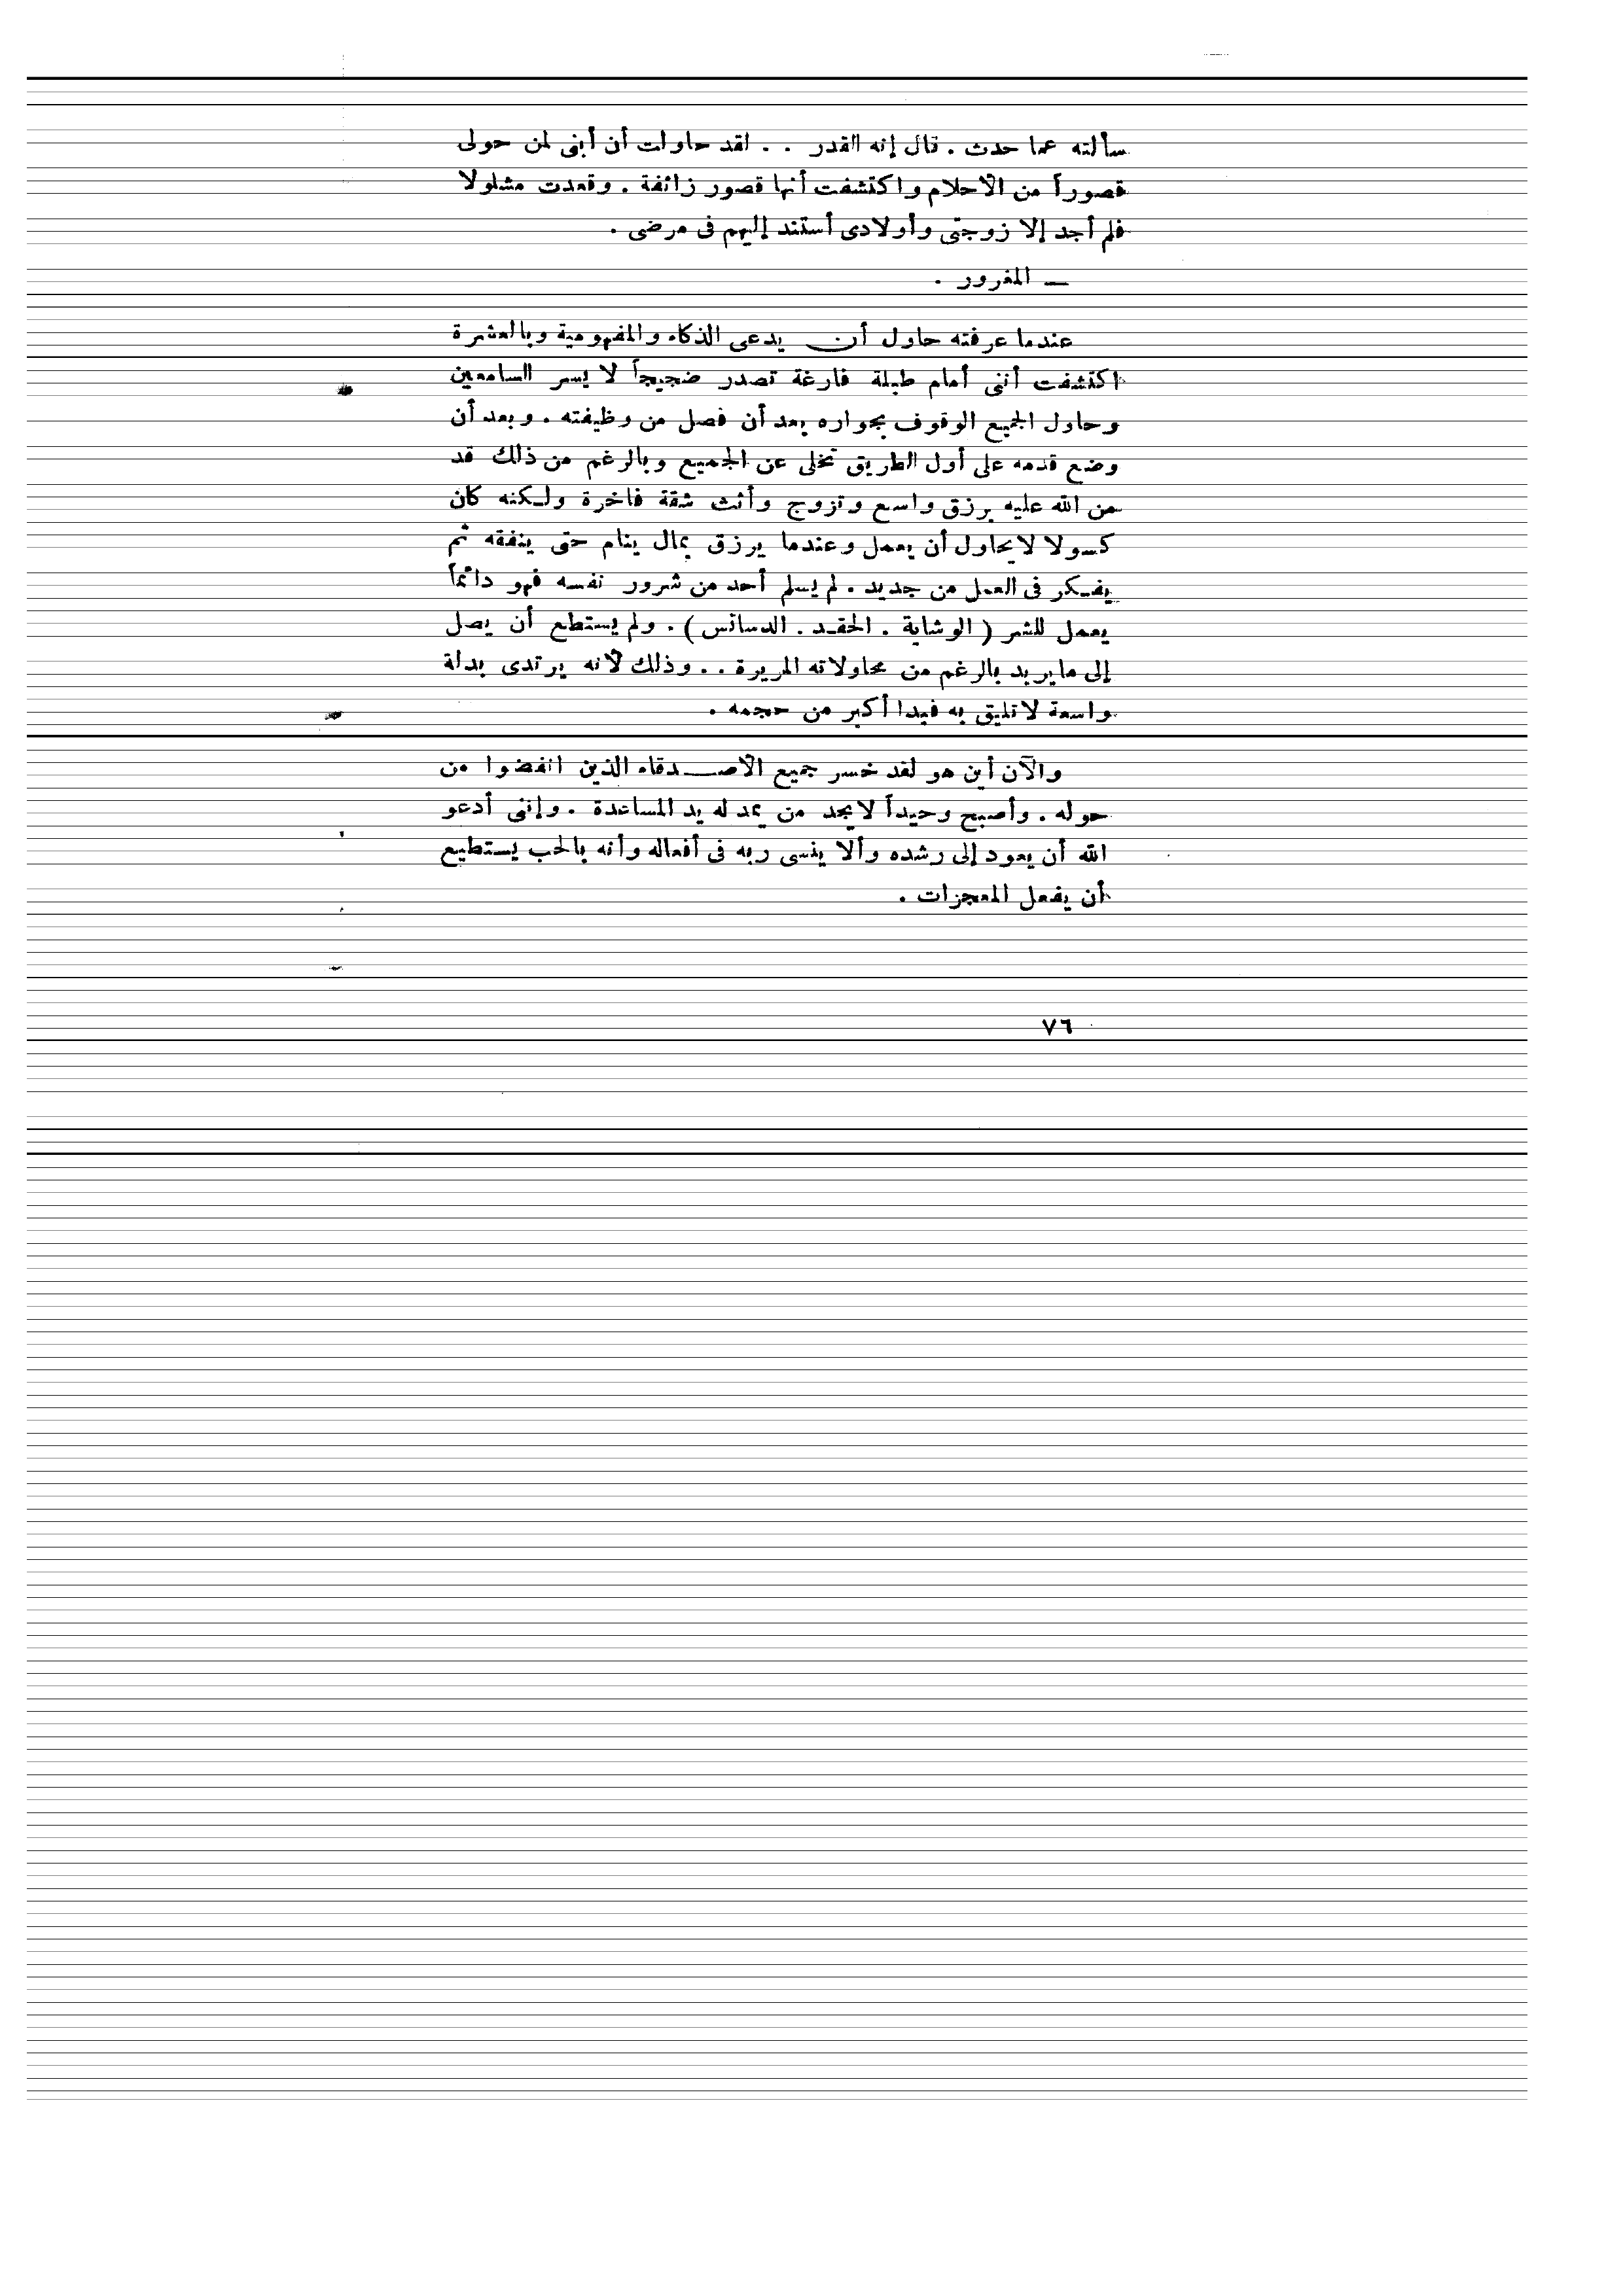 سألته عما حدث . قال إنه القدر . . لقد حاولت أن أبنى لمن حولى
قصوراً من الاحلام واكتشفت أنها قصور زائفة . وقعدت مشلولا
فلم أجد إلا زوجتى وأولادى أستند إليهم فى مرضى .
— المغرور .
عندما عرفته حاول أن يدعى الذكاء والمفهومية وبالعشرة
اكتشفت أننى أمام طبلة فارغة تصدر ضجيجاً لا يسر السامعين
وحاول الجميع الوقوف بجواره بعد أن فصل من وظيفته . وبعد أن
وضع قدمه على أول الطريق تخلى عن الجميع وبالرغم من ذلك قد
من الله عليه برزق واسع وتزوج وأثث شقة فاخرة ولكنه كان
كسولا لا يحاول أن يعمل وعندما يرزق بمال ينام حتى ينفقه ثم
يفكر فى العمل من جديد . لم يسلم أحد من شرور نفسه فهو دائماً
يعمل للشر ( الوشاية . الحقد . الدسائس ) . ولم يستطع أن يصل
إلى ما يريد بالرغم من محاولاته المريرة . . وذلك لانه يرتدى بدلة
واسعة لا تليق به فبدا أكبر من حجمه .
والآن أين هو لقد خسر جميع الاصدقاء الذين انفضوا من
حوله . وأصبح وحيداً لا يجد من يمد له يد المساعدة . وإننى أدعو
الله أن يعود إلى رشده وألا ينسى ربه فى أفعاله وأنه بالحب يستطيع
أن يفعل المعجزات .
٧٦